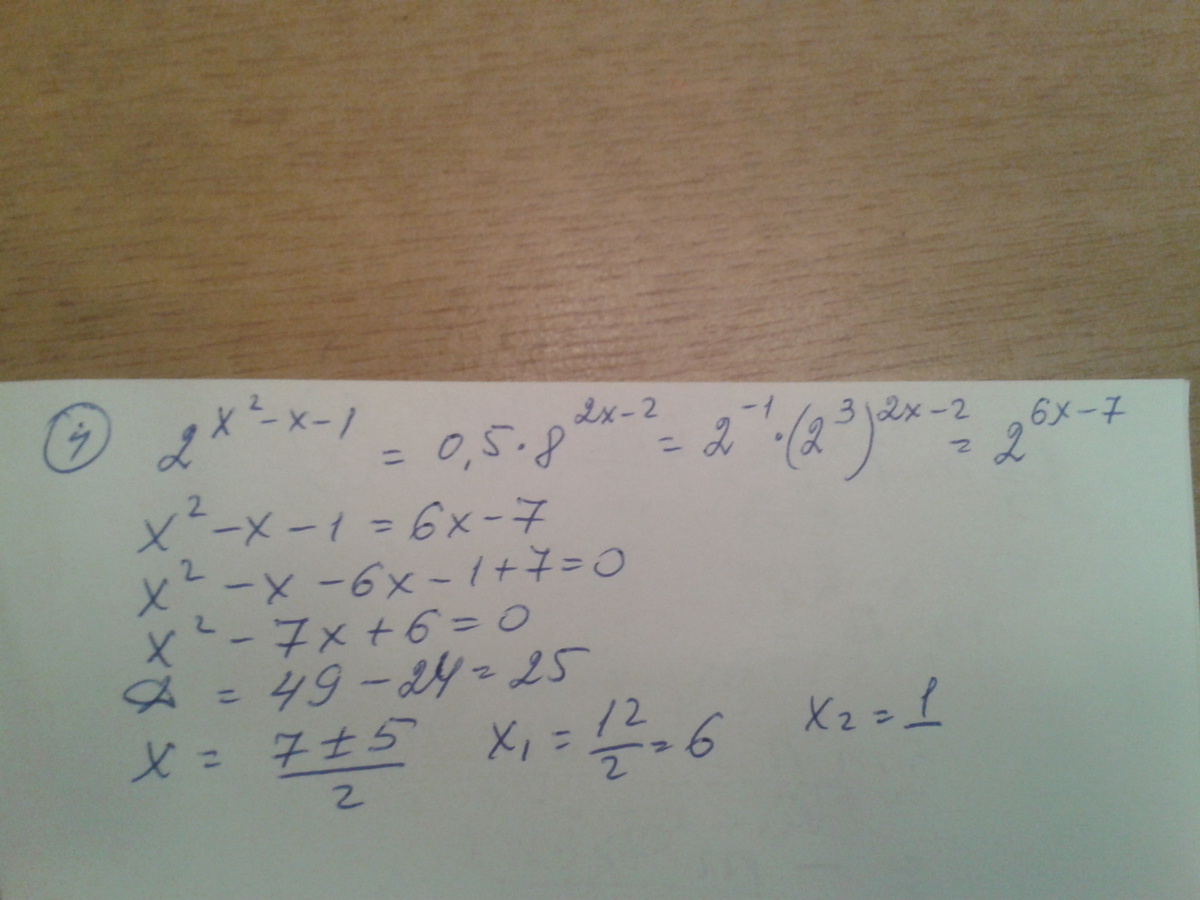 ④ 2^{x²-x-1} = 0,5·8^{2x-2} = 2^{-1}·(2³)^{2x-2} = 2^{6x-7}
x²-x-1=6x-7
x²-x-6x-1+7=0
x²-7x+6=0
D = 49-24=25
x = \frac{7±5}{2} x₁ = \frac{12}{2} = 6 x₂ = 1